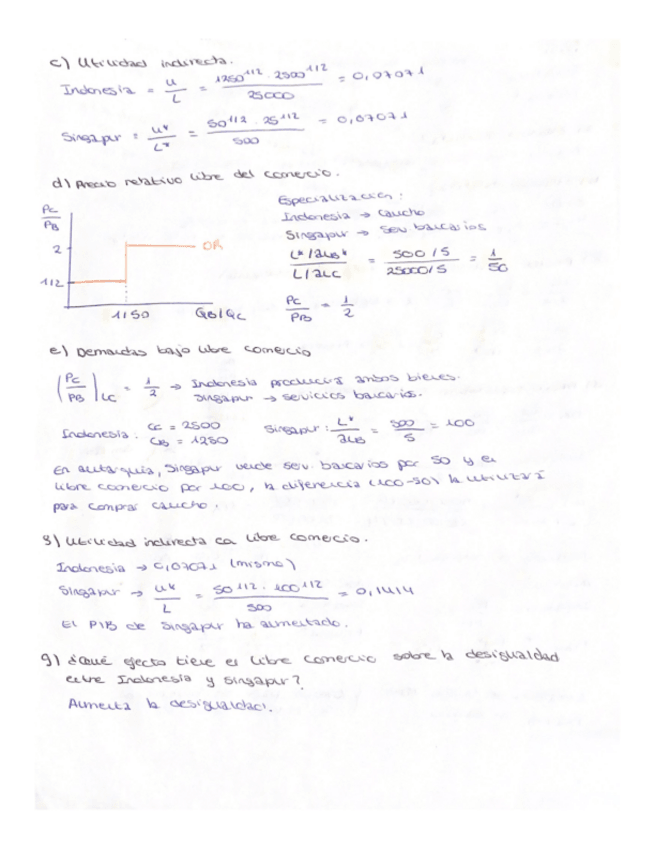 c) Utilidad indirecta.
Indonesia = u/L = 1250^1/2 · 2500^1/2 / 25000 = 0,07071
Singapur = u*/L* = 50^1/2 · 25^1/2 / 500 = 0,07071
d) Precio relativo libre del comercio.
Pc/PB
2
1/2
OR
1/50
QB/QC
Especialización:
Indonesia → caucho
Singapur → serv bancarios
L*/aLB* / L/aLC = 500/5 / 25000/5 = 1/50
Pc/PB = 1/2
e) Demandas bajo libre comercio
(Pc/PB)LC = 1/2 → Indonesia producirá ambos bienes.
Singapur → servicios bancarios.
Indonesia: Cc = 2500
CB = 1250
Singapur: L*/aLB = 500/5 = 100
En autarquía, Singapur vende serv. bancarios por 50 y en
libre comercio por 100, la diferencia (100-50) la utilizará
para comprar caucho.
f) Utilidad indirecta con libre comercio.
Indonesia → 0,07071 (mismo)
Singapur → u*/L = 50^1/2 · 100^1/2 / 500 = 0,1414
El PIB de Singapur ha aumentado.
g) ¿Qué efecto tiene el libre comercio sobre la desigualdad
entre Indonesia y Singapur?
Aumenta la desigualdad.